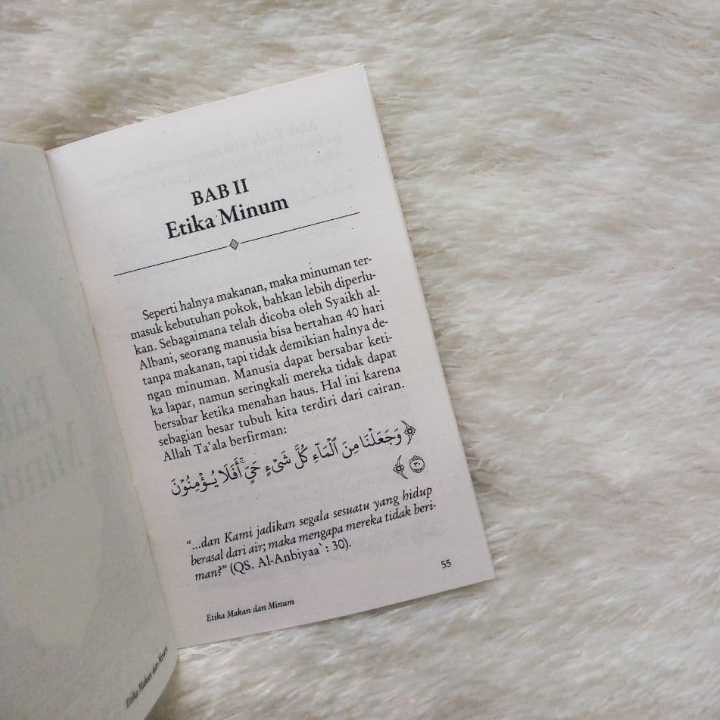 BAB II
Etika Minum
Seperti halnya makanan, maka minuman ter-
masuk kebutuhan pokok, bahkan lebih diperlu-
kan. Sebagaimana telah dicoba oleh Syaikh al-
Albani, seorang manusia bisa bertahan 40 hari
tanpa makanan, tapi tidak demikian halnya de-
ngan minuman. Manusia dapat bersabar keti-
ka lapar, namun seringkali mereka tidak dapat
bersabar ketika menahan haus. Hal ini karena
sebagian besar tubuh kita terdiri dari cairan.
Allah Ta'ala berfirman:
﴿وَجَعَلْنَا مِنَ ٱلْمَآءِ كُلَّ شَىْءٍ حَىٍّ ۖ أَفَلَا يُؤْمِنُونَ
٣٠﴾
"...dan Kami jadikan segala sesuatu yang hidup
berasal dari air; maka mengapa mereka tidak beri-
man?" (QS. Al-Anbiyaa`: 30).
55
Etika Makan dan Minum
Etika Makan dan Minum